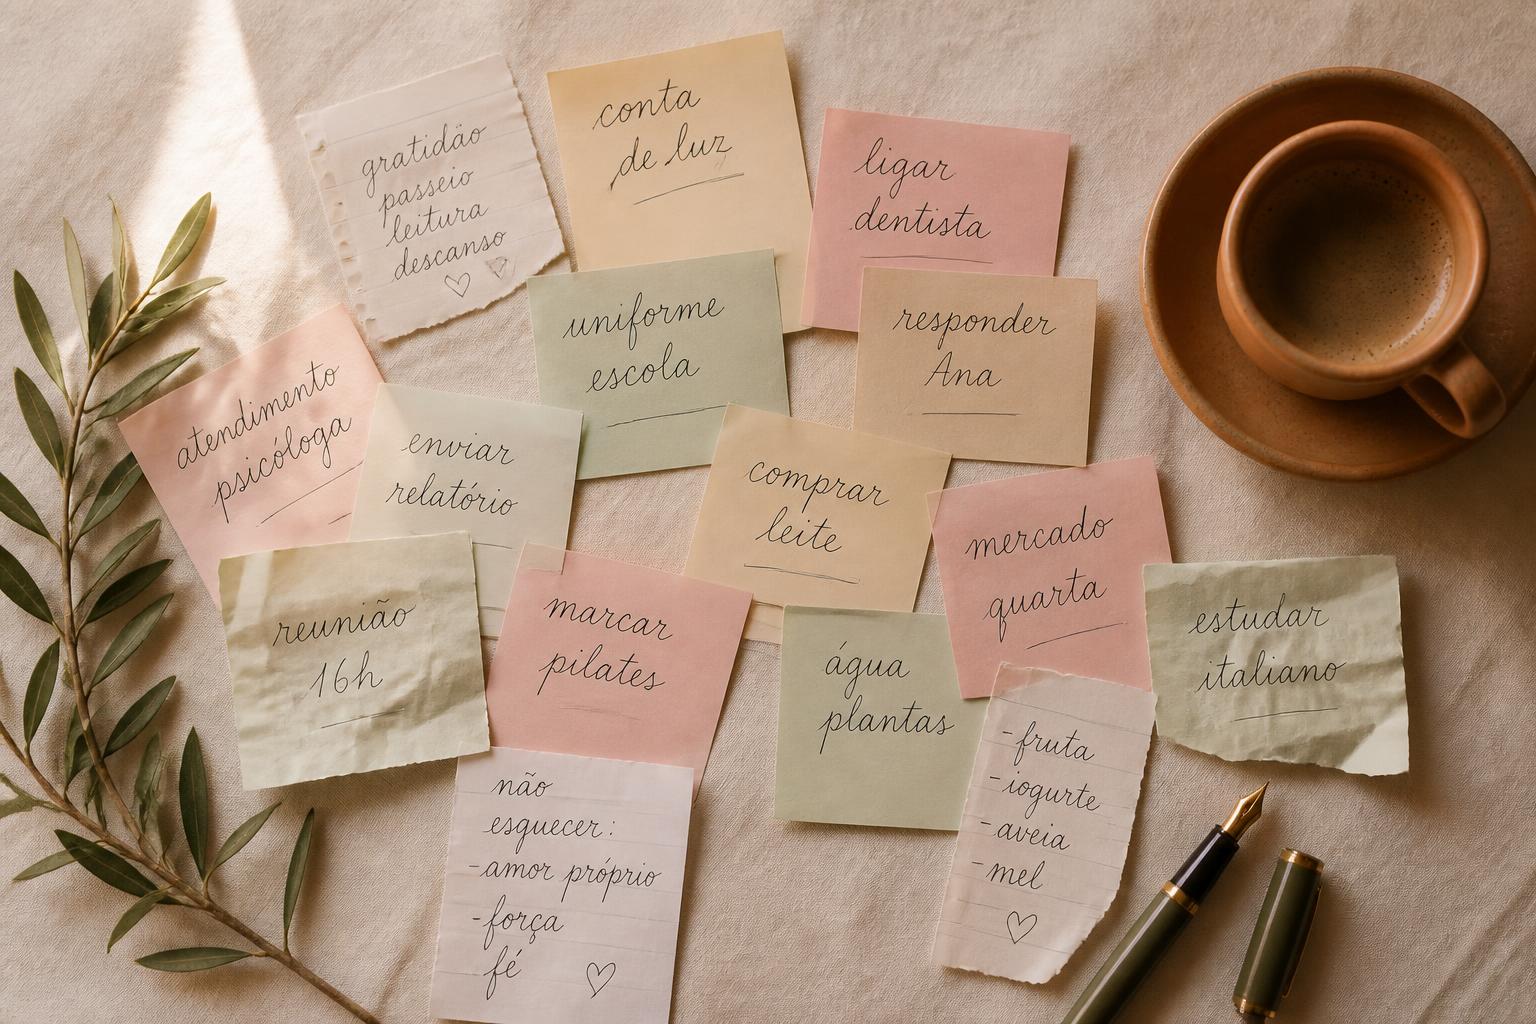 gratidão
passeio
leitura
descanso
conta
de luz
ligar
dentista
uniforme
escola
responder
Ana
atendimento
psicóloga
enviar
relatório
comprar
leite
mercado
quarta
reunião
16h
marcar
pilates
água
plantas
estudar
italiano
não
esquecer:
-amor próprio
-força
fé
-fruta
-iogurte
-aveia
-mel